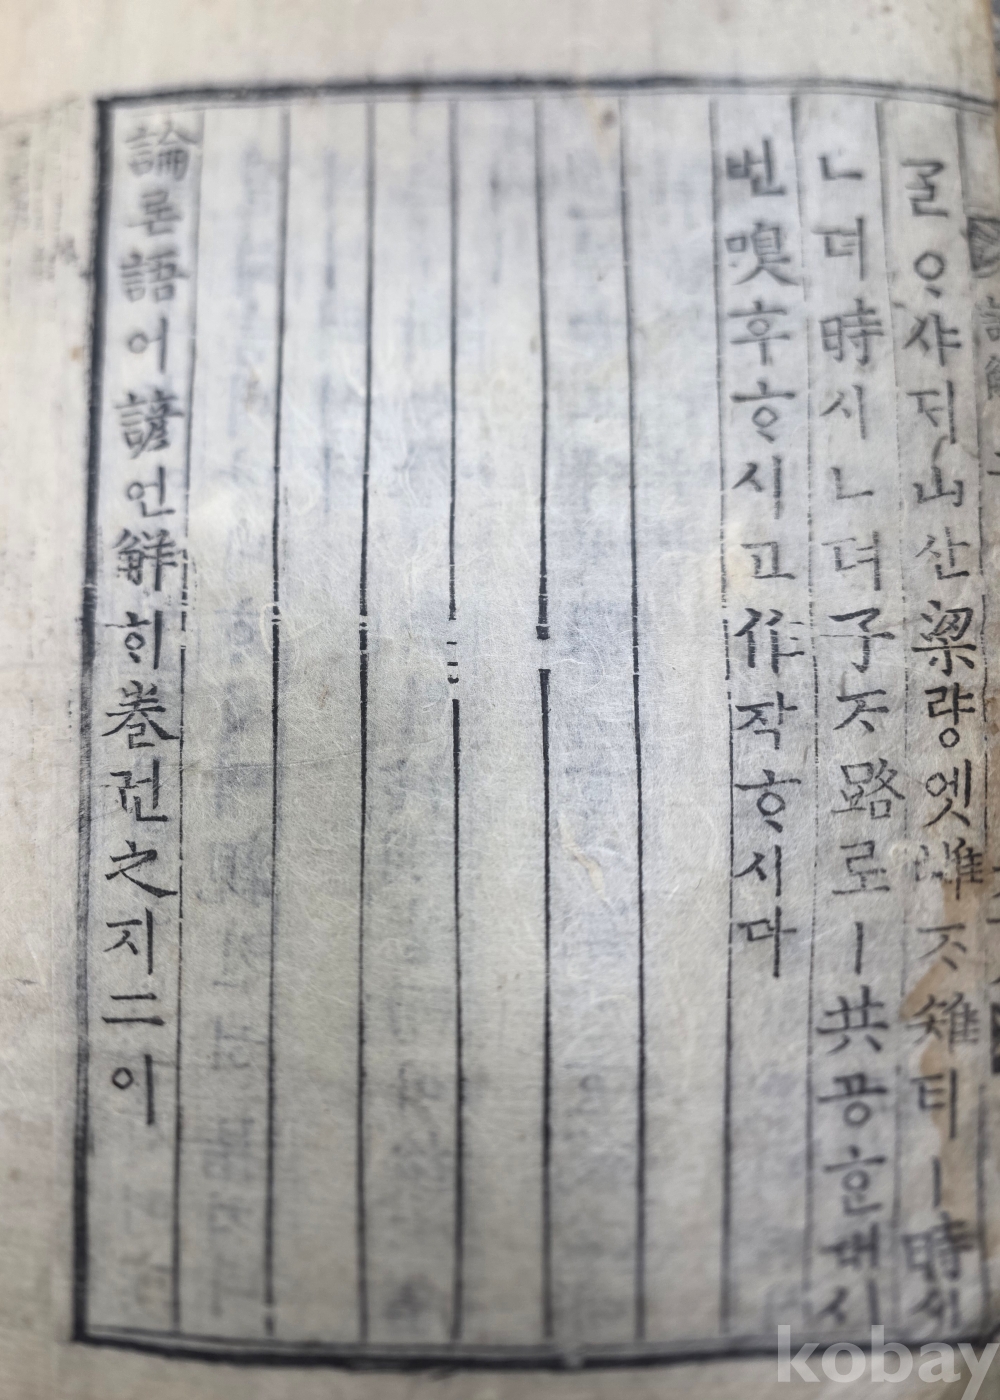 ᄀᆞᆯᄋᆞ샤ᄃᆡ山산梁량엣雌ᄌᆞ雉티ㅣ時시
ㄴ뎌時시ㄴ뎌子ᄌᆞ路로ㅣ共공ᄒᆞᆫ대시
번嗅후ᄒᆞ시고作작ᄒᆞ시다
論론語어諺언解ᄒᆡ卷권之지二이
kobay